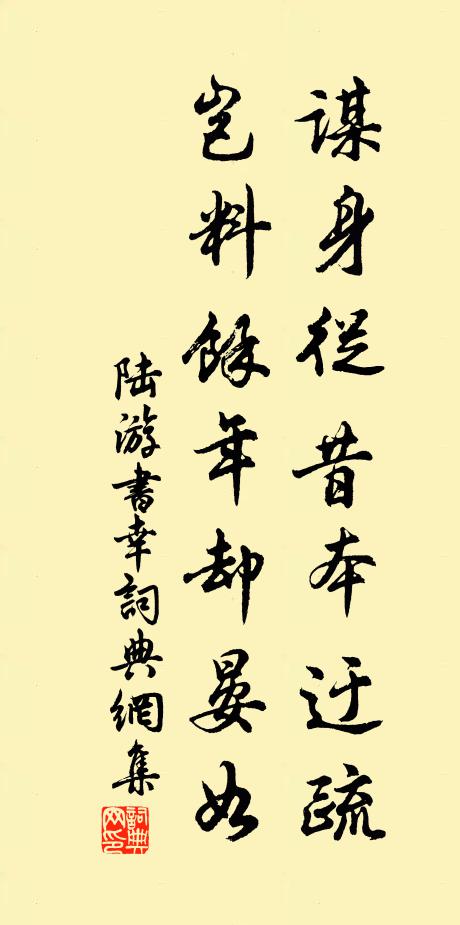 謀身從昔本迂疏
豈料餘年却晏如
陸游書幸詞典網集
詞典網印